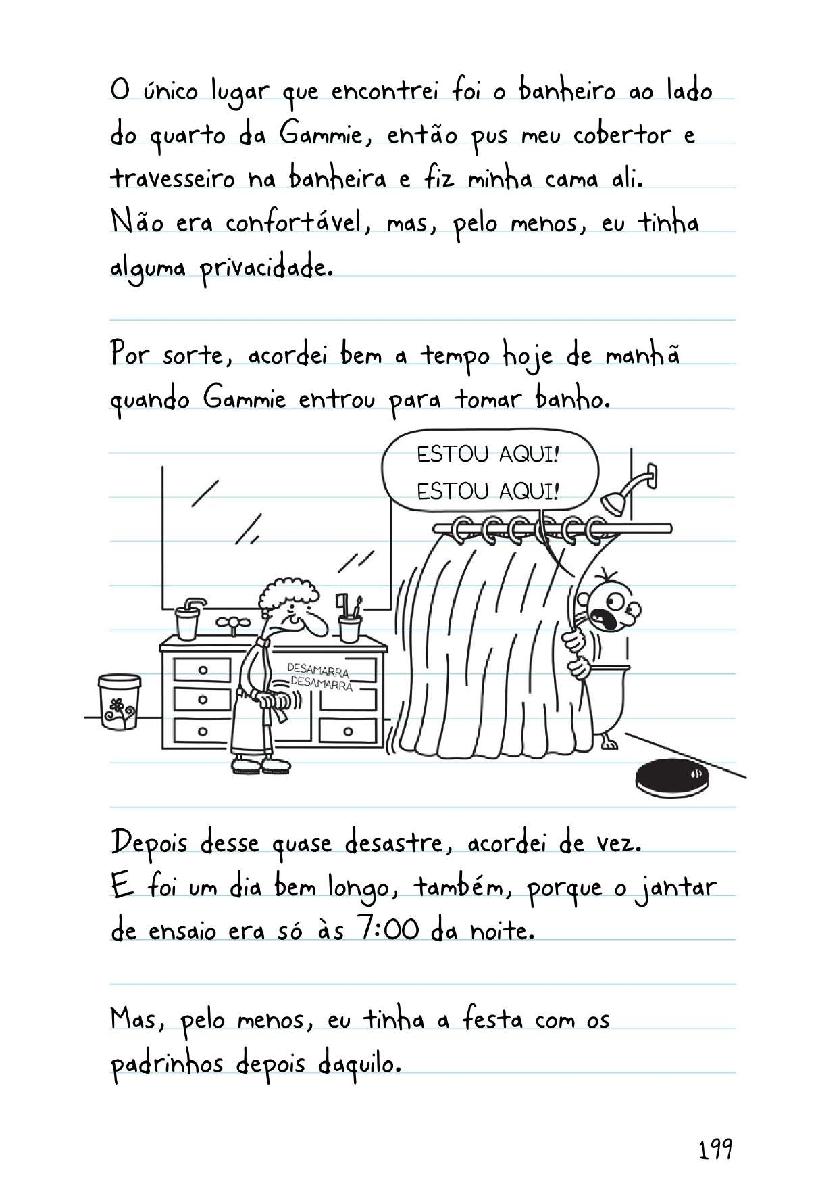 O único lugar que encontrei foi o banheiro ao lado
do quarto da Gammie, então pus meu cobertor e
travesseiro na banheira e fiz minha cama ali.
Não era confortável, mas, pelo menos, eu tinha
alguma privacidade.
Por sorte, acordei bem a tempo hoje de manhã
quando Gammie entrou para tomar banho.
ESTOU AQUI!
ESTOU AQUI!
DESAMARRA
DESAMARRA
Depois desse quase desastre, acordei de vez.
E foi um dia bem longo, também, porque o jantar
de ensaio era só às 7:00 da noite.
Mas, pelo menos, eu tinha a festa com os
padrinhos depois daquilo.
199